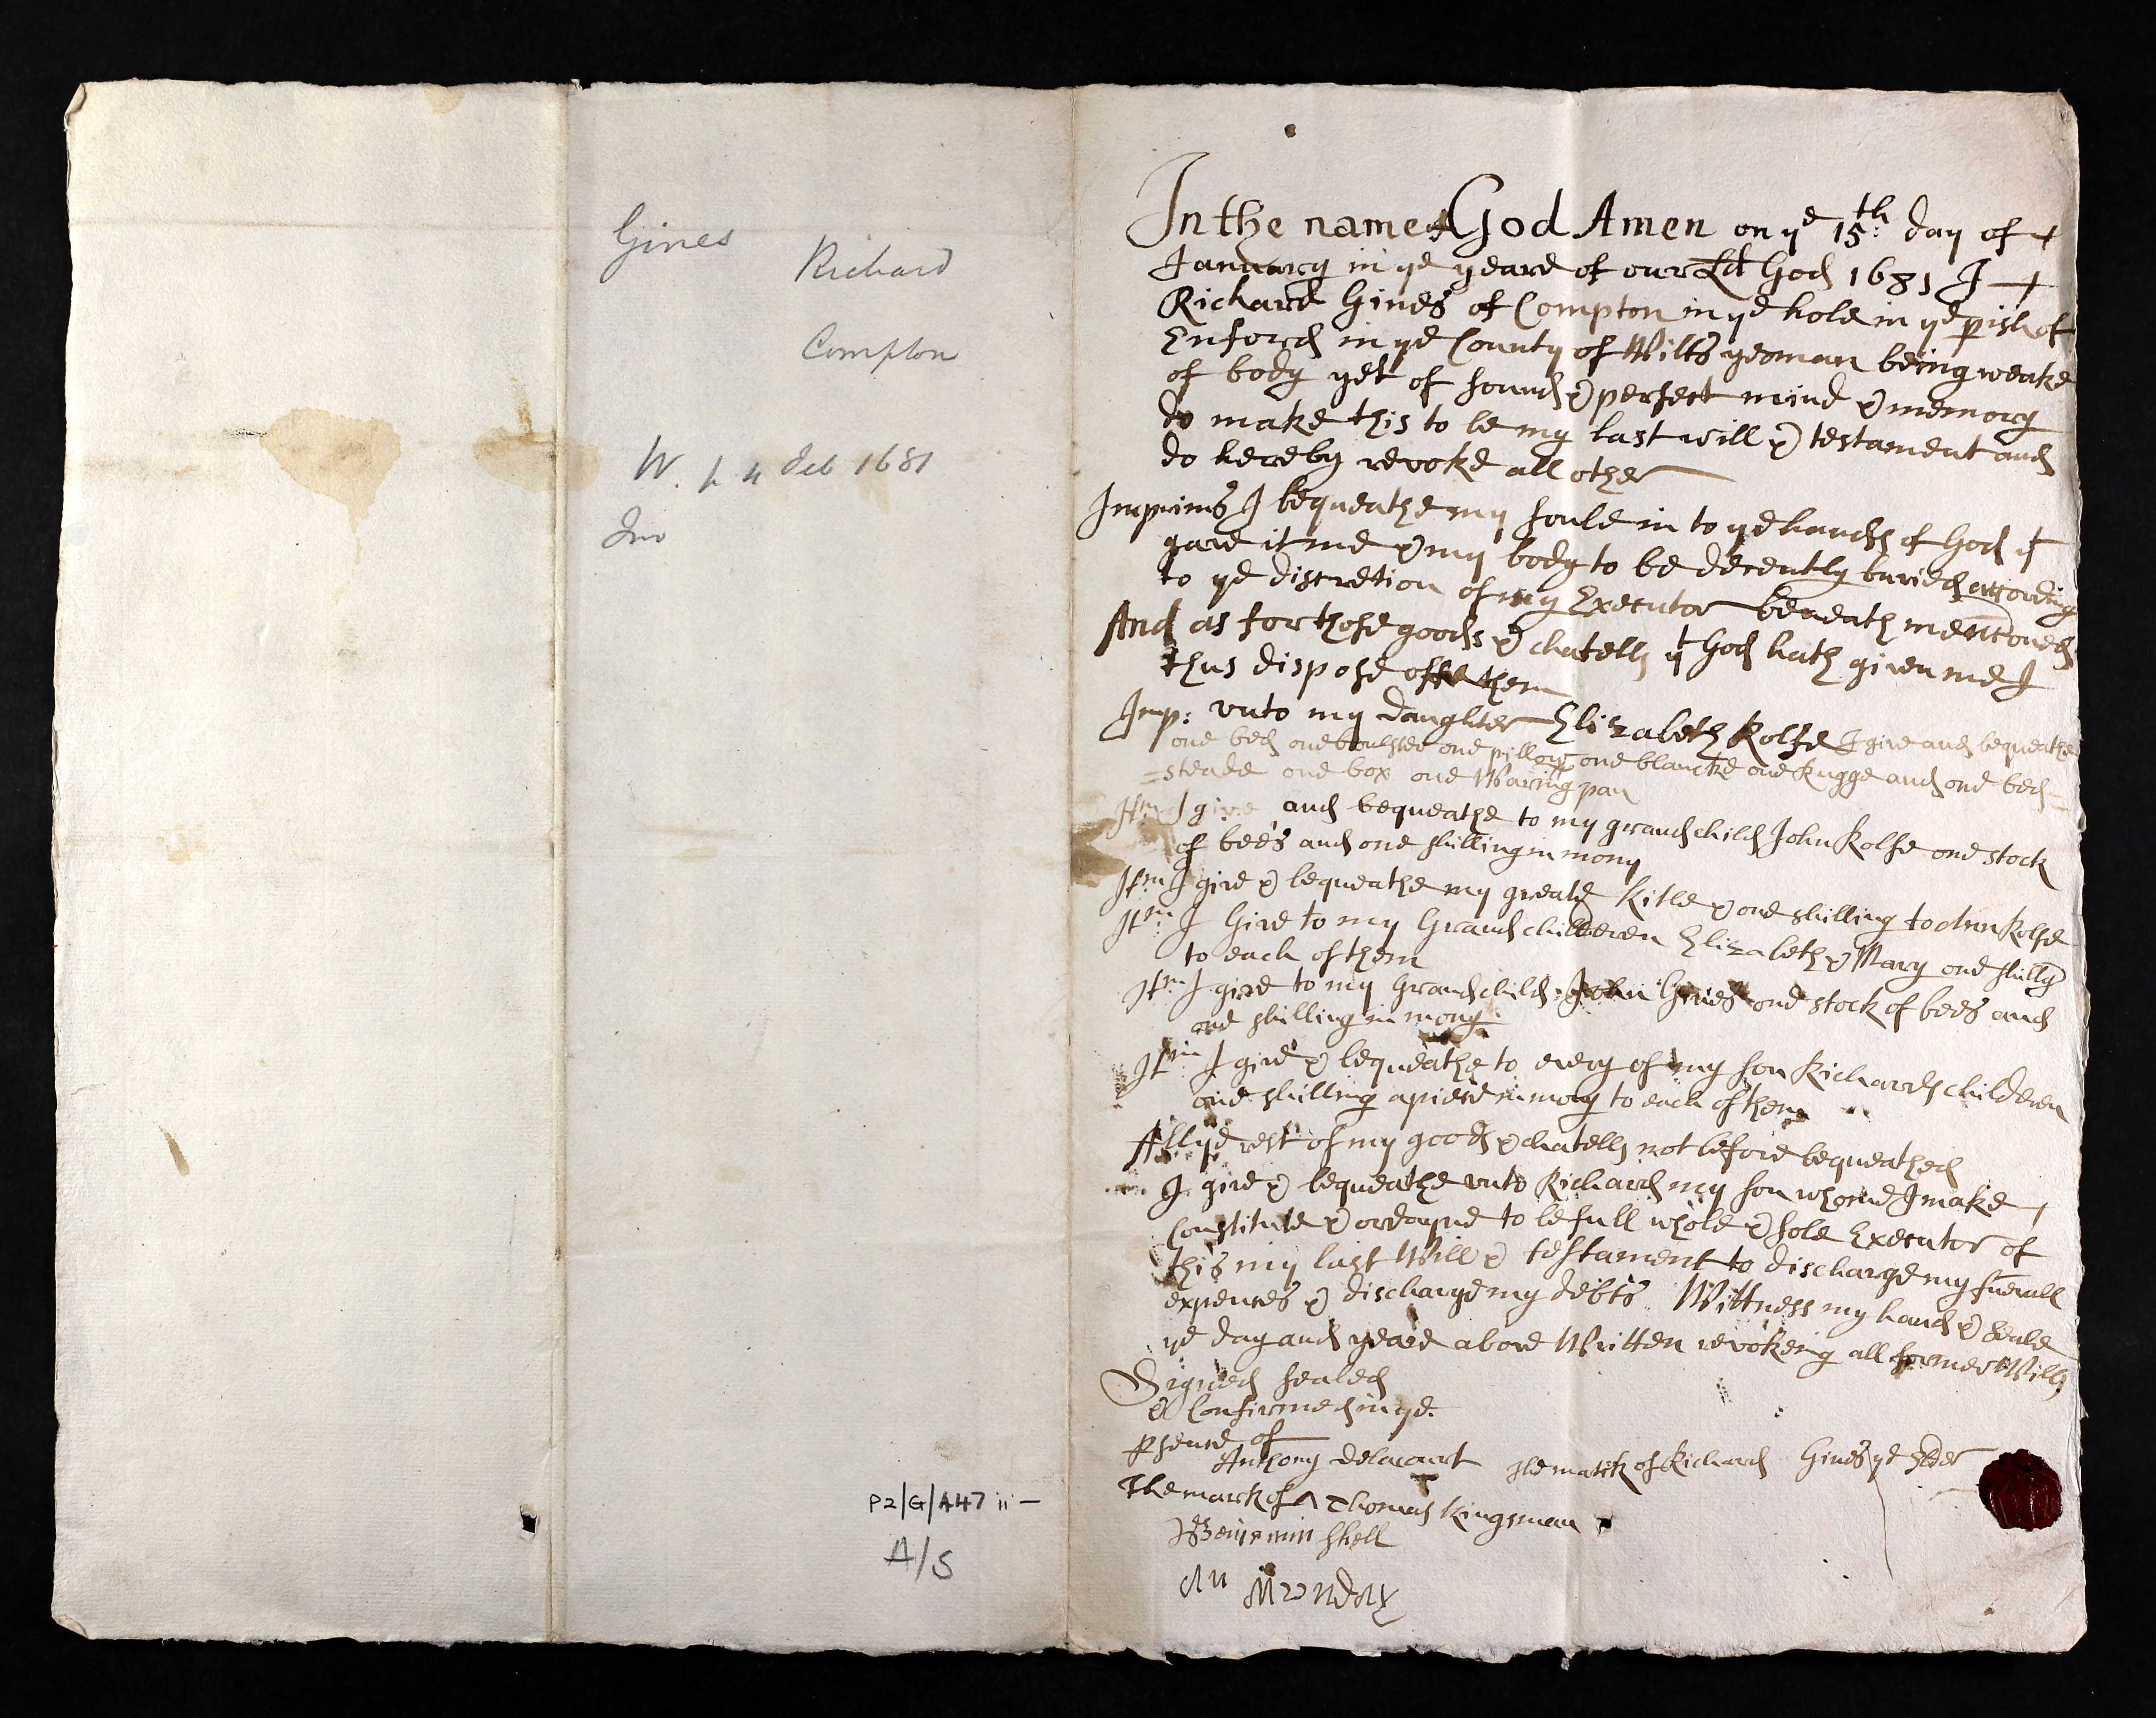 Gines
Richard
Compton
W. 4 Feb 1681
Inv
P2/G/A47 ii —
A/S
In the name of God Amen on ye 15th: day of
January in ye yeare of our Ld God 1681 I
Richard Gines of Compton in ye hole in ye pish of
Enford in ye County of Wilts yeoman being weake
of body yet of sound & perfect mind & memory
do make this to be my last will & testament and
do hereby revoke all other
Imprimis I bequeathe my soule in to ye hands of God yt
gave it me & my body to be decently buried according
to ye discretion of my Executor beneath mentioned
And as for those goods & chatells yt God hath given me I
thus dispose off them
Imp: unto my daughter Elizabeth Rolfe I give and bequeathe
one bed one boulster one pillow one blancke one Rugge and one bed=
=steade one box one Warīng pan
Itm I give and bequeathe to my grandchild John Rolfe one stock
of bees and one shilling in mony
Itm I give & bequeathe my greate kitle & one shilling to Ann Rolfe
Itm: I Give to my Grandchilderen Elizabeth & Mary one shillg
to each of them
Itm I give to my Grandchild John Gines one stock of bees and
one shilling in mony
Itm: I give & bequeathe to every of my son Richards childeren
one shilling apiece in mony to each of them
All ye rest of my goods & chatells not before bequeathed
I give & bequeathe unto Richard my son whome I make
Constitute & ordayne to be full whole & sole Executor of
this my last Will & testament to discharge my fūerall
expences & discharge my debts Wittness my hand & seale
ye day and yeare above Written revokeing all former Wills
Signed sealed
& Confirmed in ye
psence of
Anthony Delacourt the mark of Richard Gines ye Elder
The mark of Thomas Kingsman
Beniamin Skell
An Munday